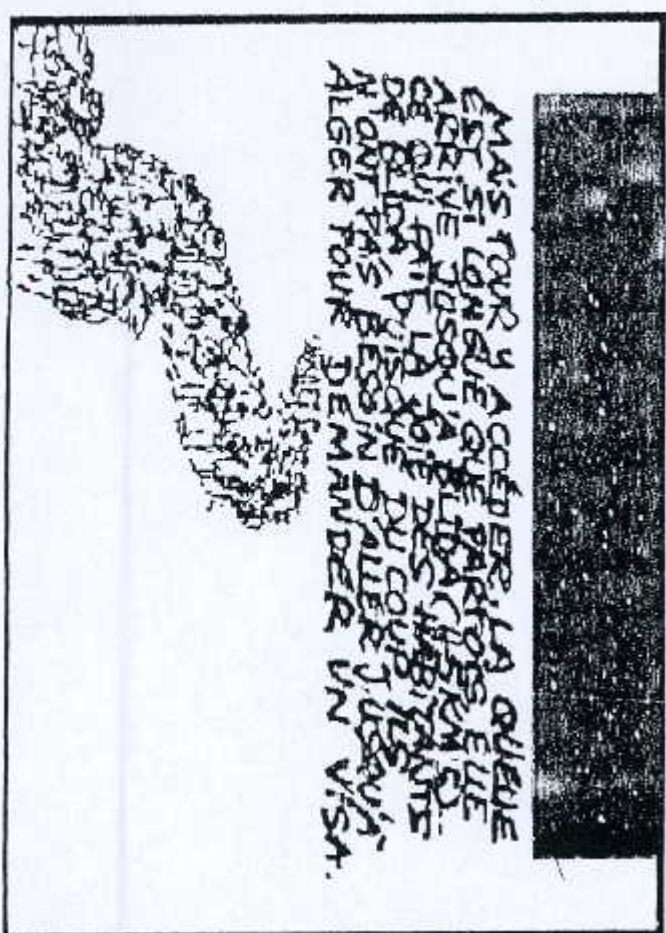 MAIS POUR Y ACCÉDER, LA QUEUE
EST SI LONGUE QUE PARFOIS ELLE
ARRIVE JUSQU'A BLIDA (50KMS)...
CE QUI FAIT LA JOIE DES HABITANTS
DE BLIDA PUISQUE DU COUP ILS
N'ONT PAS BESOIN D'ALLER JUSQU'À
ALGER POUR DEMANDER UN VISA.